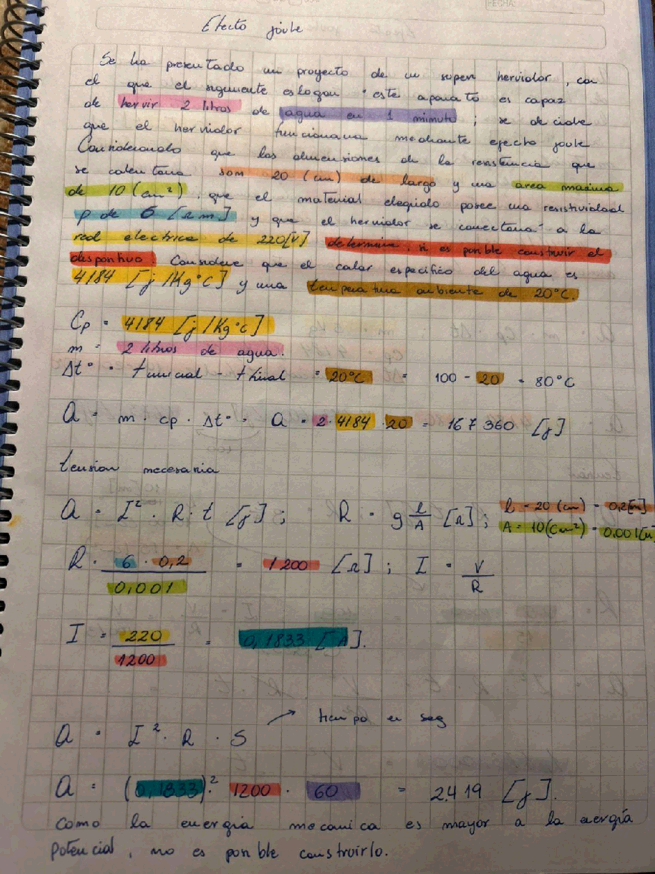 Efecto joule
Se ha presentado un proyecto de un super hervidor, con
el que el siguiente eslogan "este aparato es capaz
de hervir 2 litros de agua en 1 minuto", se decide
que el hervidor funcionara mediante efecto joule
Considerando que las dimensiones de la resistencia que
se calentara son 20 (cm) de largo y una area maxima
de 10 (cm²), que el material elegido posee una resistividad
ρ de 6 [Ωm] y que el hervidor se conectara a la
red electrica de 220[v] determine, si es posible construir el
dispositivo Considere que el calor especifico del agua es
4184 [j/Kg°c] y una temperatura ambiente de 20°C.
Cp = 4184 [j/Kg°c]
m = 2 litros de agua.
Δt° = t inicial - t final = 20°C = 100 - 20 = 80°C
Q = m · cp · Δt° - Q = 2·4184·20 = 167360 [j]
tension necesaria
Q = I² · R · t [j]; R = ρ l/A [Ω]; l = 20 (cm) = 0,2[m]
A = 10(cm²) = 0,001[m
R = 6 · 0,2 / 0,001 = 1200 [Ω]; I = V/R
I = 220/1200 = 0,1833 [A].
Q = I² · R · S → tiempo en seg
Q = (0,1833)² · 1200 · 60 = 2.419 [j].
Como la energia mecanica es mayor a la energía
potencial, no es posible construirlo.